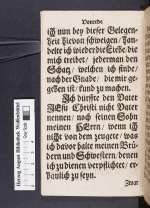 Vorrede.
ich nun bey dieser Gelegen-
heit hievon schweigen/ han-
delte ich wieder die Liebe/ die
mich treibet/ jederman den
Schatz/ welchen ich finde/
noch der Gnade/ die mir ge-
geben ist/ kund zu machen.
Ich dürffte den Vater
JEsu Christi nicht Vater
nennen/ noch seinen Sohn
meinen HErrn/ wenn ich
nicht von dem zeugete/ was
ich davor halte meinen Brü-
dern und Schwestern/ denen
ich zu dienen verpflichtet/ er-
baulich zu seyn.
Zwar
Herzog August Bibliothek Wolfenbüttel